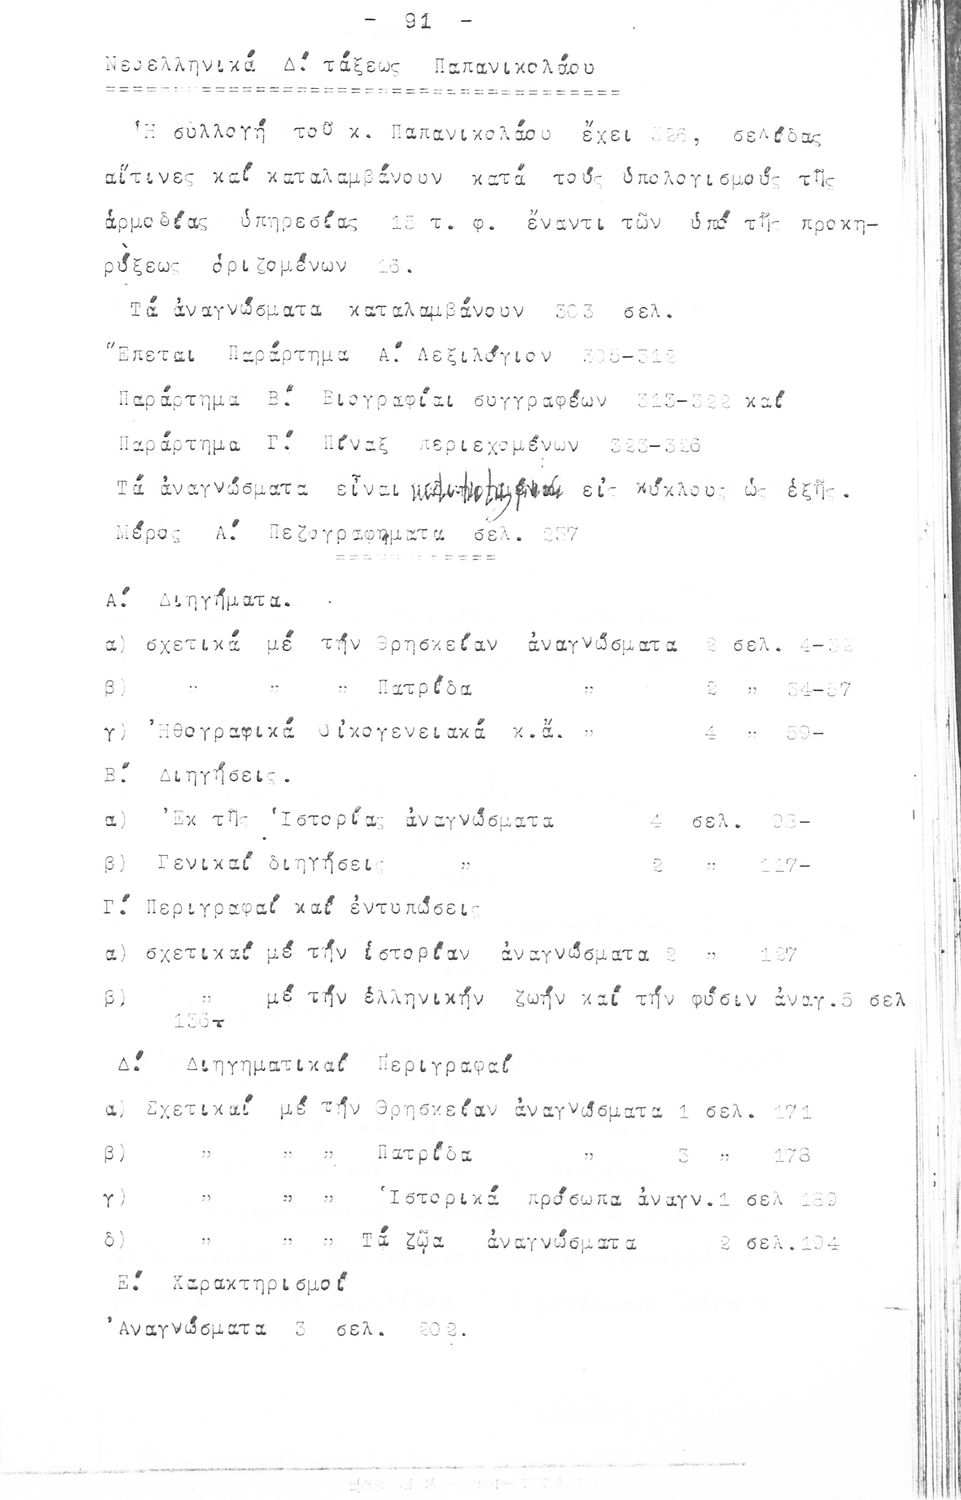 - 91 -
Νεοελληνικά Δ! τάξεως Παπανικολάου
Ἡ συλλογή τοῦ κ. Παπανικολάου ἔχει 326, σελίδας
αἵτινες καί καταλαμβάνουν κατά τούς ὑπολογισμούς τῆς
ἁρμοδίας ὑπηρεσίας 15 τ. φ. ἔναντι τῶν ὑπό τῆς προκη-
ρύξεως ὁριζομένων 16.
Τά ἀναγνώσματα καταλαμβάνουν 303 σελ.
Ἕπεται Παράρτημα Α! Λεξιλόγιον 305-312
Παράρτημα Β! Βιογραφίαι συγγραφέων 313-322 καί
Παράρτημα Γ! Πίναξ περιεχομένων 323-326
Τά ἀναγνώσματα εἶναι εἰς κύκλους ὡς ἑξῆς.
Μέρος Α! Πεζογραφηματα σελ. 237
Α! Διηγήματα.
α) σχετικά μέ τήν Θρησκείαν ἀναγνώσματα 2 σελ. 4-
β) " " " Πατρίδα " 2 " 34-57
γ) Ἠθογραφικά Οἰκογενειακά κ.ἄ. " 4 " 59-
Β! Διηγήσεις.
α) Ἐκ τῆς Ἱστορίας ἀναγνώσματα 4 σελ. 93-
β) Γενικαί διηγήσεις " 2 " 117-
Γ! Περιγραφαί καί ἐντυπώσεις
α) σχετικαί μέ τήν ἱστορίαν ἀναγνώσματα 2 " 127
β) " μέ τήν ἑλληνικήν ζωήν καί τήν φύσιν ἀναγ.5 σελ
136-
Δ! Διηγηματικαί Περιγραφαί
α) Σχετικαί μέ τήν Θρησκείαν ἀναγνώσματα 1 σελ. 171
β) " " " Πατρίδα " 3 " 178
γ) " " " Ἱστορικά πρόσωπα ἀναγν.1 σελ 189
δ) " " " Τά ζῷα ἀναγνώσματα 2 σελ.194
Ε! Χαρακτηρισμοί
Ἀναγνώσματα 3 σελ. 202.